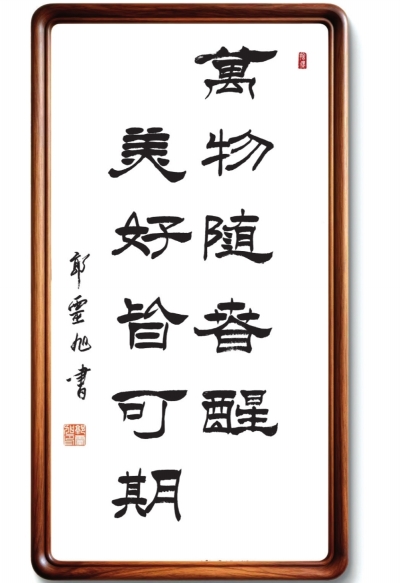 萬物随春醒
美好皆可期
郭靈旭書